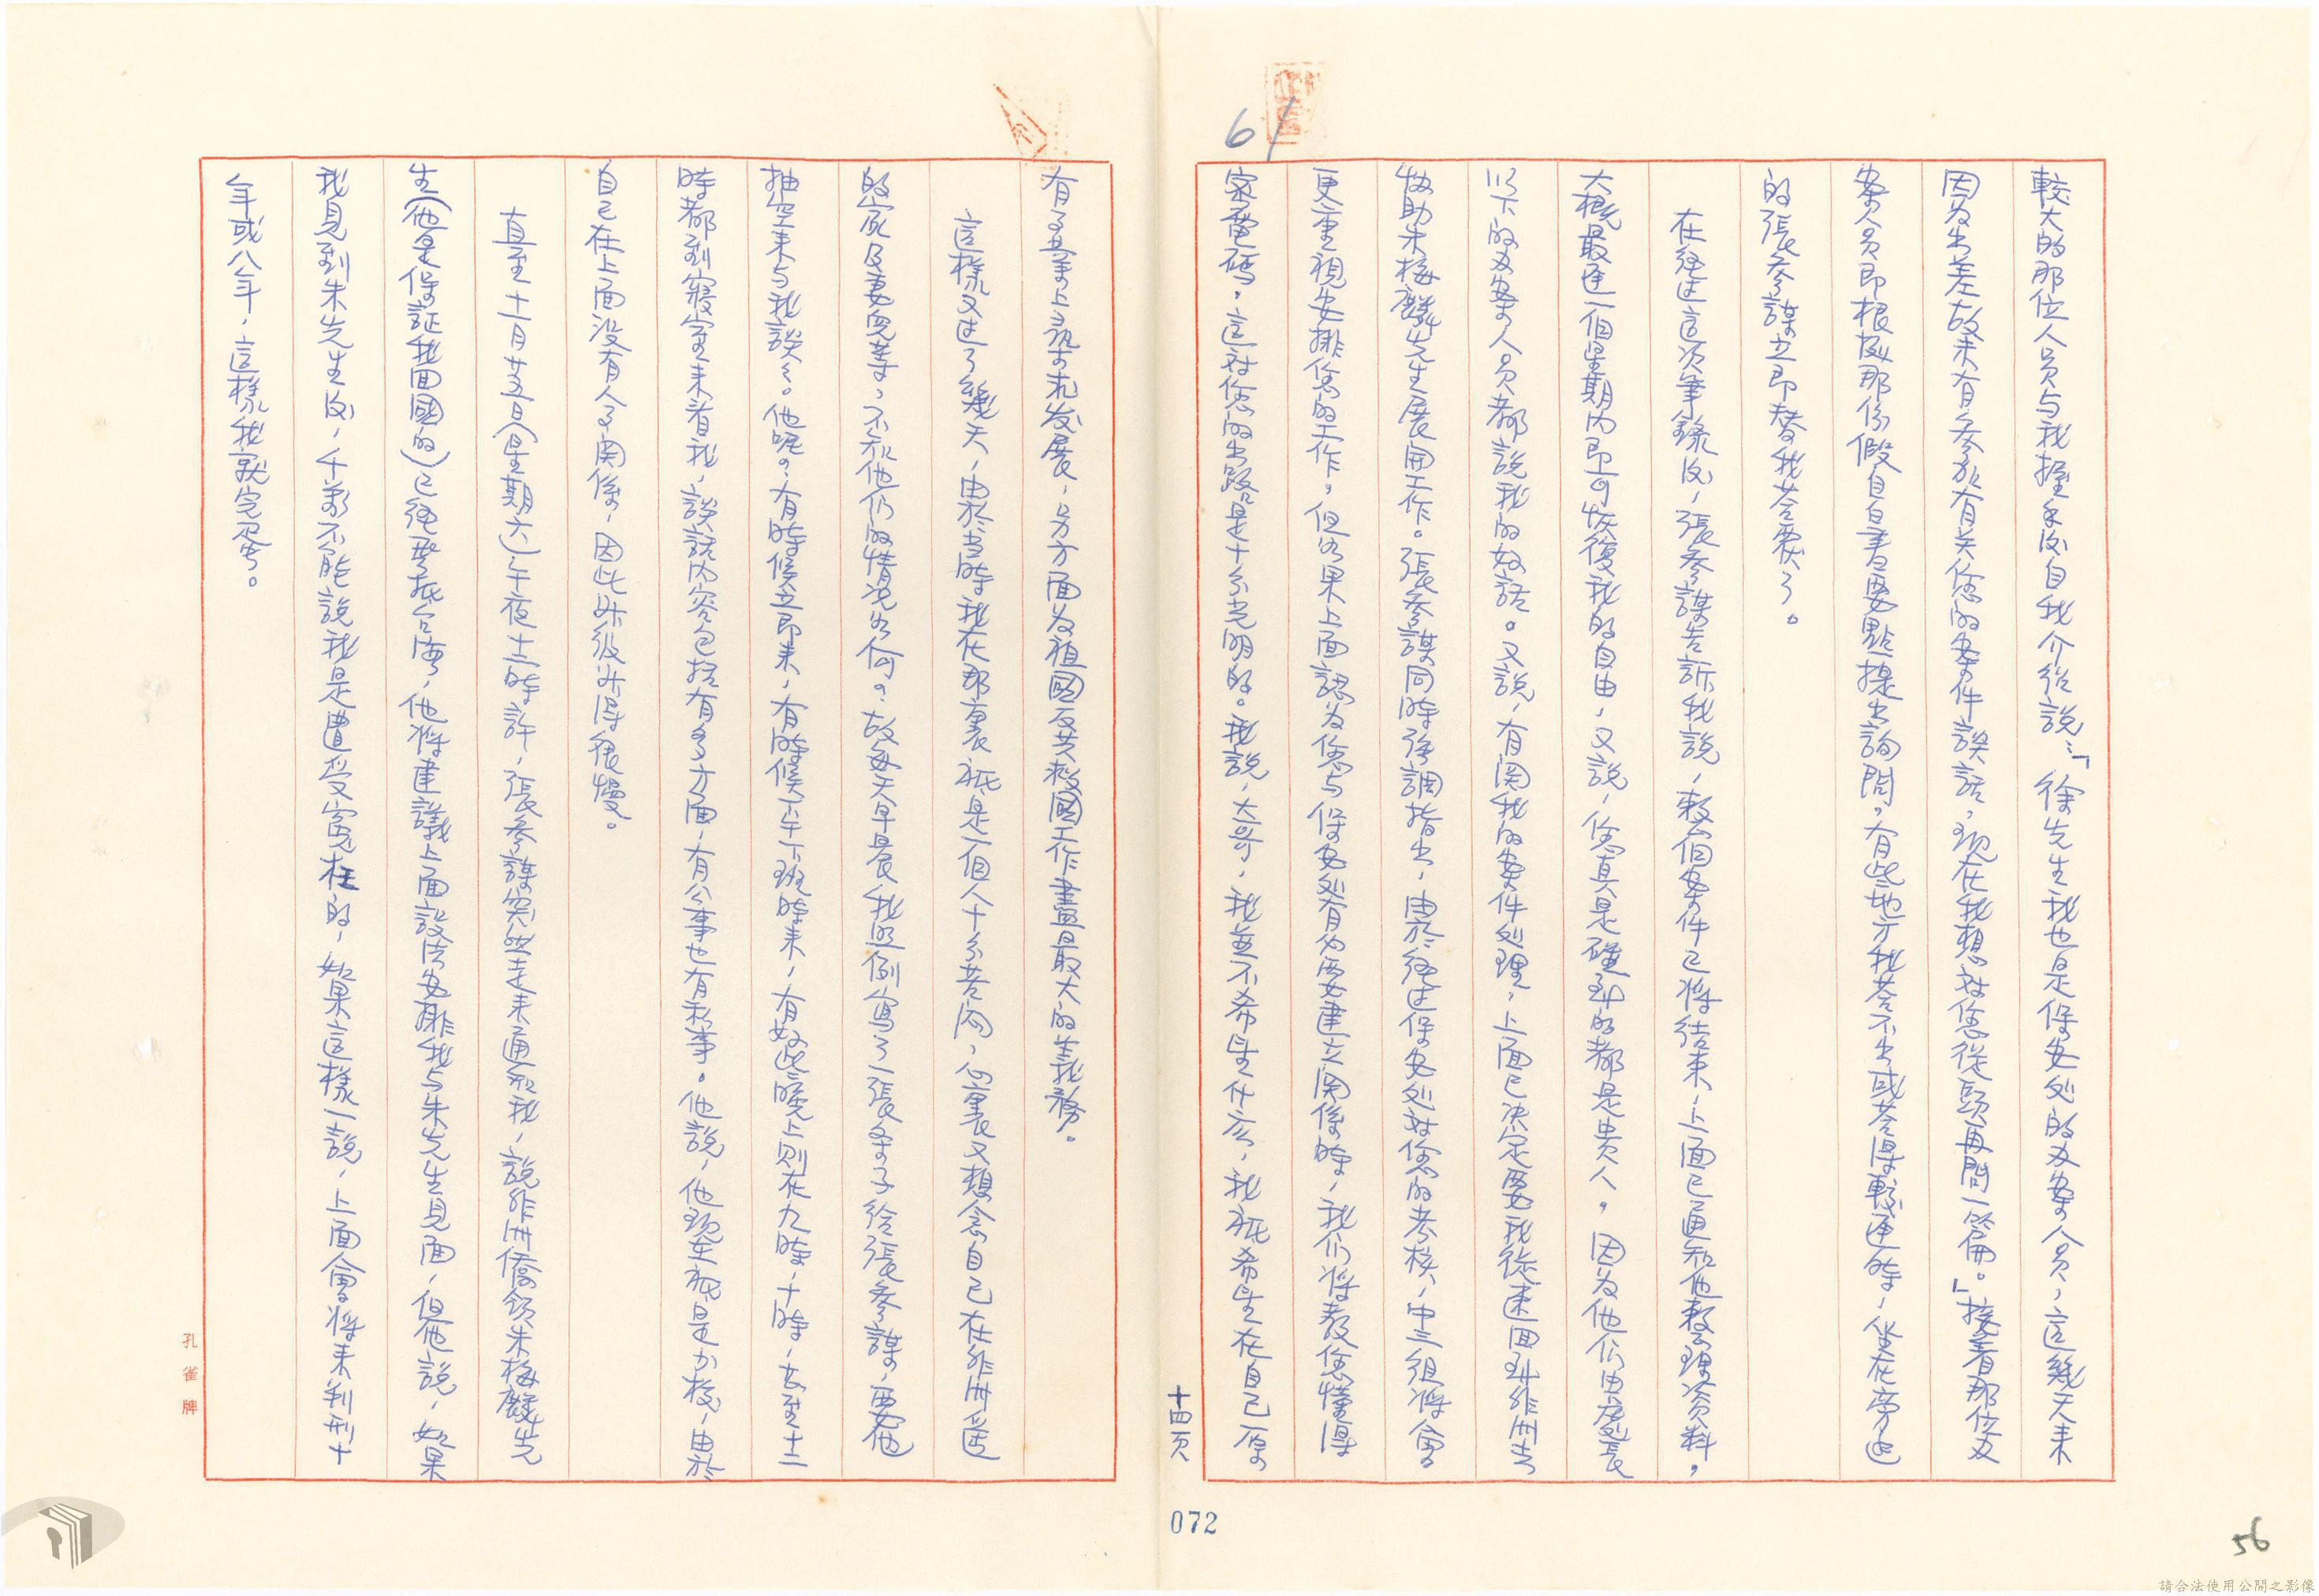 61
較大的那位人员与我握手後自我介绍說：「徐先生我也是保安处的办案人员，這幾天来
因为出差故未有参加有关您的案件談話，現在我想对您從頭再問一篇。」接着那位办
案人员即根據那份假自白書要點提出詢問，有些地方我荅不出或荅得較遲時，坐在旁边
的張参謀立即替我荅覆了。
在经过這次筆錄後，張参謀告訴我說，較個案件已將结束，上面已通知他整理資料，
大概最遲一個星期内即可恢復我的自由，又說，您真是碰到的都是贵人。因为他们由處長
以下的办案人员都說我的好話。又說，有関我的案件处理，上面已决定要我從速回到非洲去
協助朱梅麟先生展開工作。張参謀同時強調指出，由於经过保安处对您的考核，中三组將會
更重視安排您的工作，但如果上面認为您与保安处有必要建立関係時，我们將教您懂得
密電碼，這对您的出路是十分光明的。我說，大哥，我並不希望什么，我祇希望在自己原
有的事業上尋求发展，另方面为祖國反共救國工作盡最大的義務。
這樣又过了幾天，由於当時我在那裏祇是一個人十分苦闷，心裏又想念自己在非洲遥
的家及妻兒等，不知他们的情况如何？故每天早晨我照例寫了一張条子给張参謀，要他
抽空来与我談談。他呢？有時候立即来，有時候下午下班時来，有好些晚上则在九時，十時，甚至十二
時都到寢室来看我，談話内容包括有多方面，有公事也有私事。他說，他現在祇是少校，由於
自己在上面没有人事関係，因此升級升得很慢。
直至十一月廿五日（星期六）午夜十二時許，張参謀突然走来通知我，說非洲僑領朱梅麟先
生（他是保証我回國的）已经要抵台湾，他將建議上面設法安排我与朱先生見面，但他說，如果
我見到朱先生後，千萬不能說我是遭受冤枉的，如果這樣一說，上面會將来判刑十
年或八年，這樣我就完蛋。
十四頁
孔雀牌
072
56
請合法使用公開之影像